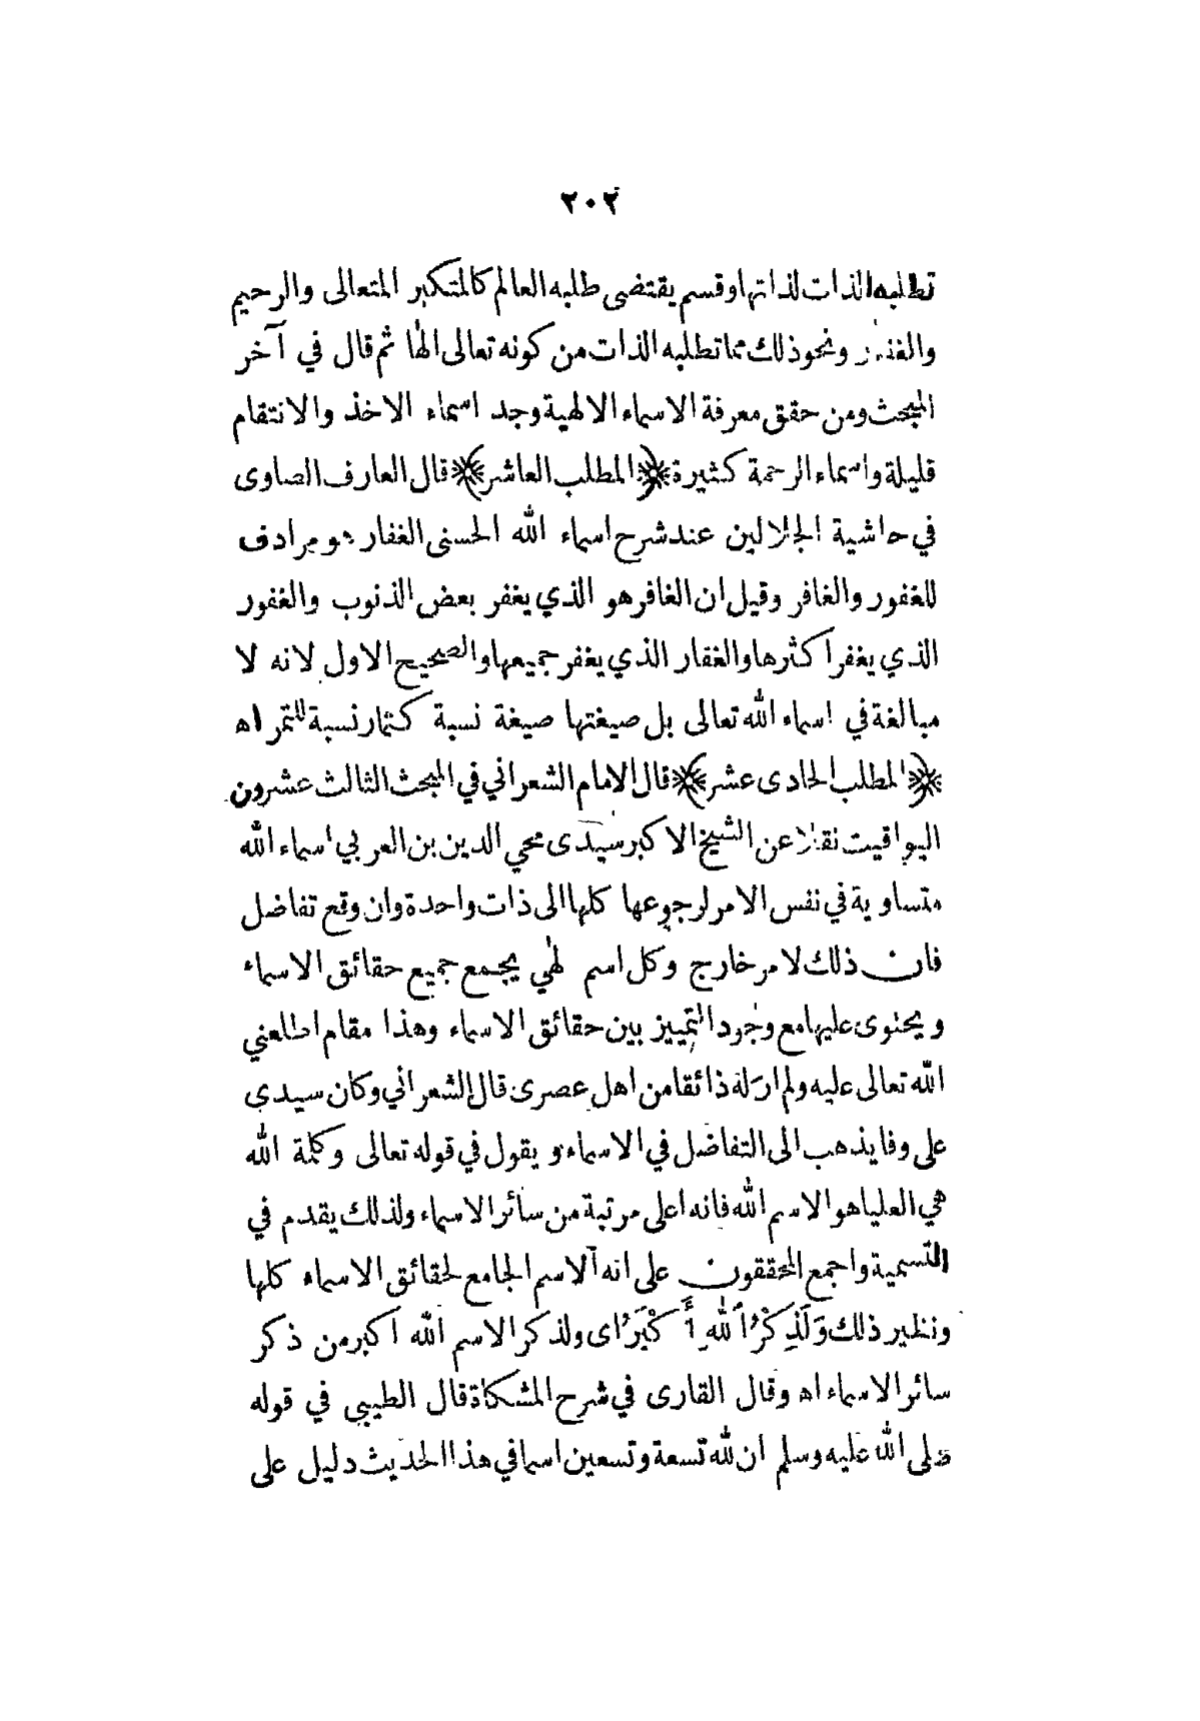 ٢٠٢
تطلبه الذات لذاتها وقسم يقتضى طلبه العالم كالمتكبر المتعالى والرحيم
والغفار ونحو ذلك مما تطلبه الذات من كونه تعالى الها ثم قال في آخر
المبحث ومن حقق معرفة الاسماء الالهية وجد اسماء الاخذ والانتقام
قليلة واسماء الرحمة كثيرة ﴿المطلب العاشر﴾ قال العارف الصاوى
في حاشية الجلالين عند شرح اسماء الله الحسنى الغفار هو مرادف
للغفور والغافر وقيل ان الغافر هو الذي يغفر بعض الذنوب والغفور
الذي يغفر اكثرها والغفار الذي يغفر جميعها والصحيح الاول لانه لا
مبالغة في اسماء الله تعالى بل صيغتها صيغة نسبة كتمار نسبة للتمر اه
﴿المطلب الحادى عشر﴾ قال الامام الشعراني في المبحث الثالث عشر ون
اليواقيت نقلا عن الشيخ الاكبر سيدى محي الدين بن العربي اسماء الله
متساوية في نفس الامر لرجوعها كلها الى ذات واحدة وان وقع تفاضل
فان ذلك لامر خارج وكل اسم لهي يجمع جميع حقائق الاسماء
ويحتوى عليها مع وجود التمييز بين حقائق الاسماء وهذا مقام اطلعني
الله تعالى عليه ولم ار له ذائقا من اهل عصرى قال الشعراني وكان سيدى
على وفا يذهب الى التفاضل في الاسماء ويقول في قوله تعالى وكلمة الله
هي العليا هو الاسم الله فانه اعلى مرتبة من سائر الاسماء ولذلك يقدم في
التسمية واجمع المحققون على انه الاسم الجامع لحقائق الاسماء كلها
ونظير ذلك وَلَذِكْرُ اللهِ أَكْبَرُ اى ولذكر الاسم الله اكبر من ذكر
سائر الاسماء اه وقال القارى في شرح المشكاة قال الطيبي في قوله
صلى الله عليه وسلم ان لله تسعة وتسعين اسما في هذا الحديث دليل على